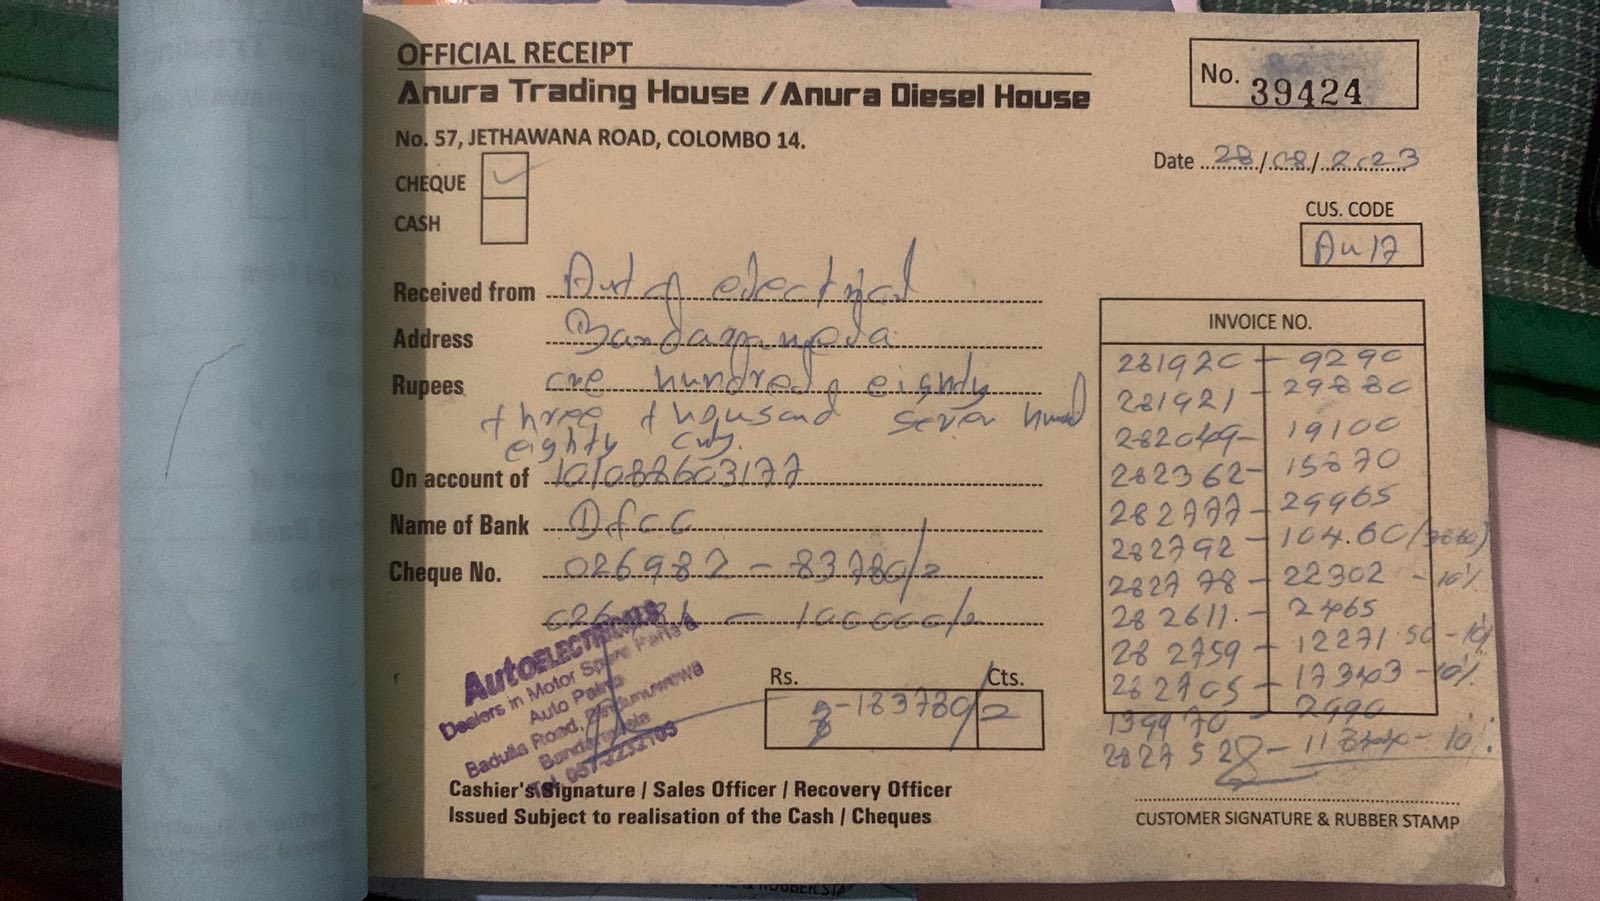 OFFICIAL RECEIPT
Anura Trading House / Anura Diesel House
No. 57, JETHAWANA ROAD, COLOMBO 14.
No. 39424
Date 28/08/2023
CHEQUE ✓
CASH
CUS. CODE
Au 17
Received from electrical
Address
Rupees one hundred eighty
three thousand seven
eighty only.
On account of 101088603177
Name of Bank Dfcc
Cheque No. 026982 - 83780/=
100000/=
INVOICE NO.
281920 - 9290
281921 - 29880
282049 - 19100
282362 - 15870
282777 - 29965
282792 -
282778 - 22302 - 10%
282611. - 2465
282759 - 12271.50 - 10%
282705 - - 10%
2990
282752 - - 10%
AutoELECTRICALS
Dealers in Motor Spare Parts &
Auto Paints
Badulla Road,
Bandarawela
Tel. 057-2232103
Rs. Cts.
183780/=
Cashier's Signature / Sales Officer / Recovery Officer
Issued Subject to realisation of the Cash / Cheques
CUSTOMER SIGNATURE & RUBBER STAMP